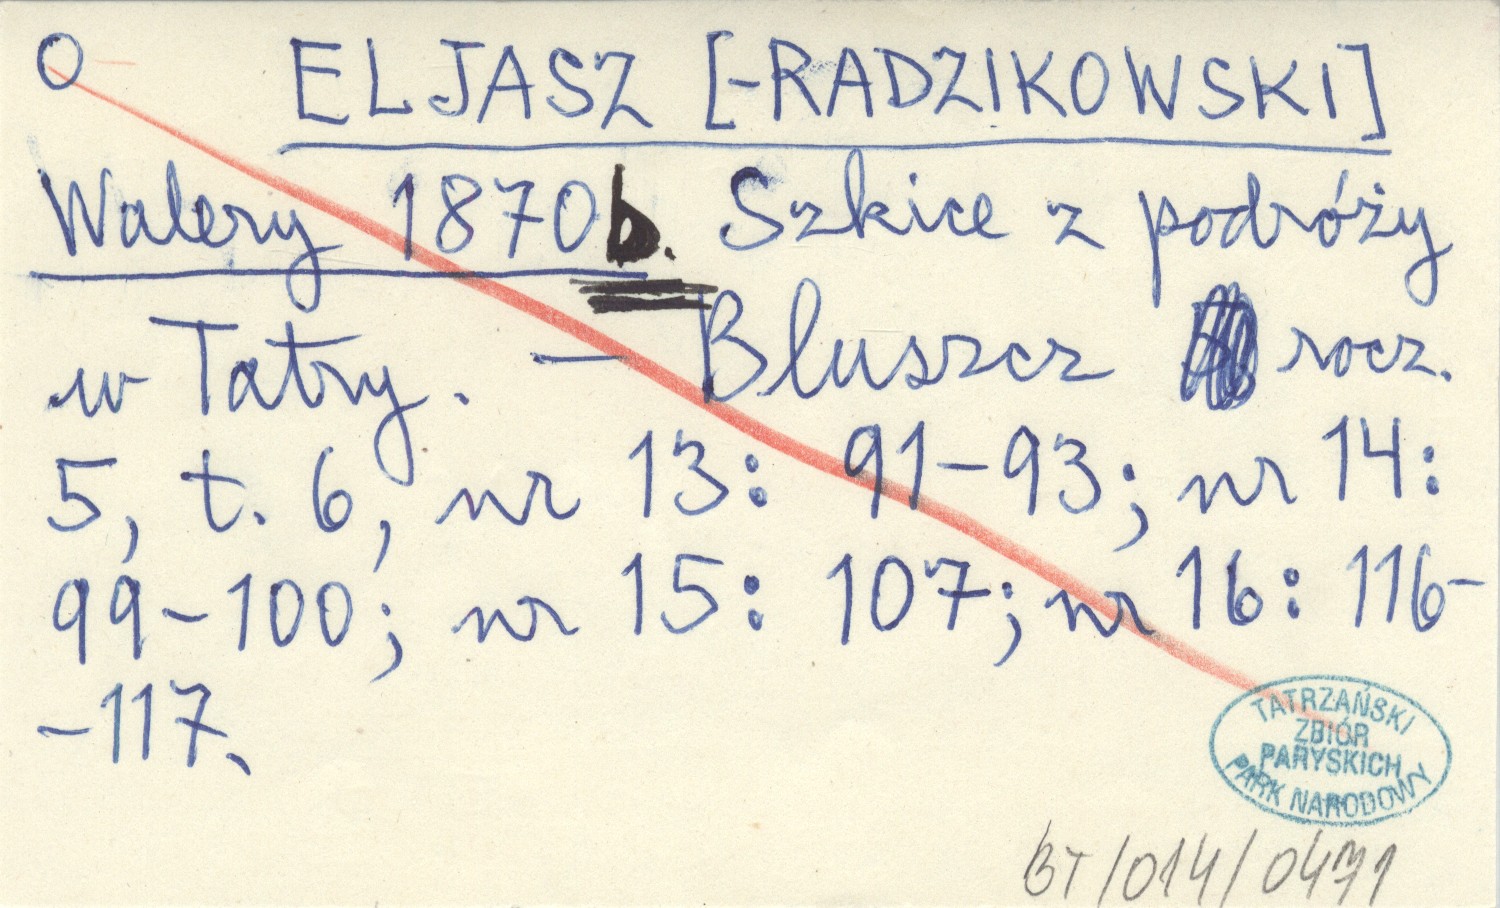 O ELJASZ [-RADZIKOWSKI]
Walery 1870b. Szkice z podróży
w Tatry. – Bluszcz rocz.
5, t. 6, nr 13: 91–93; nr 14:
99–100; nr 15: 107; nr 16: 116–
–117.
TATRZAŃSKI
ZBIÓR
PARYSKICH
PARK NARODOWY
BT/014/0471